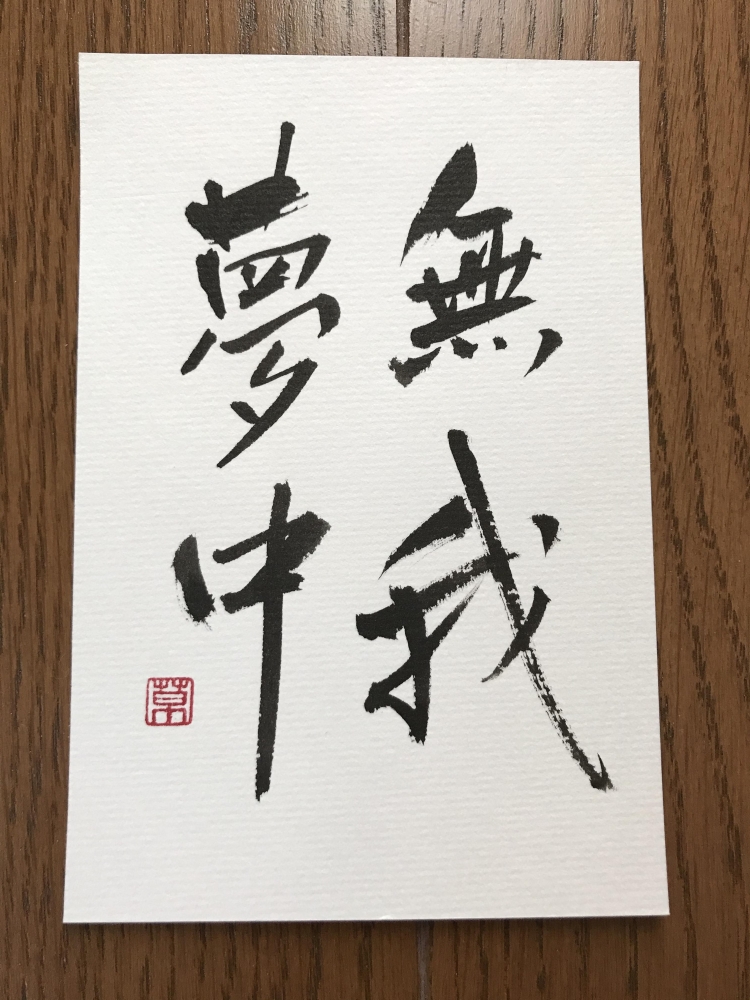 無我
夢中